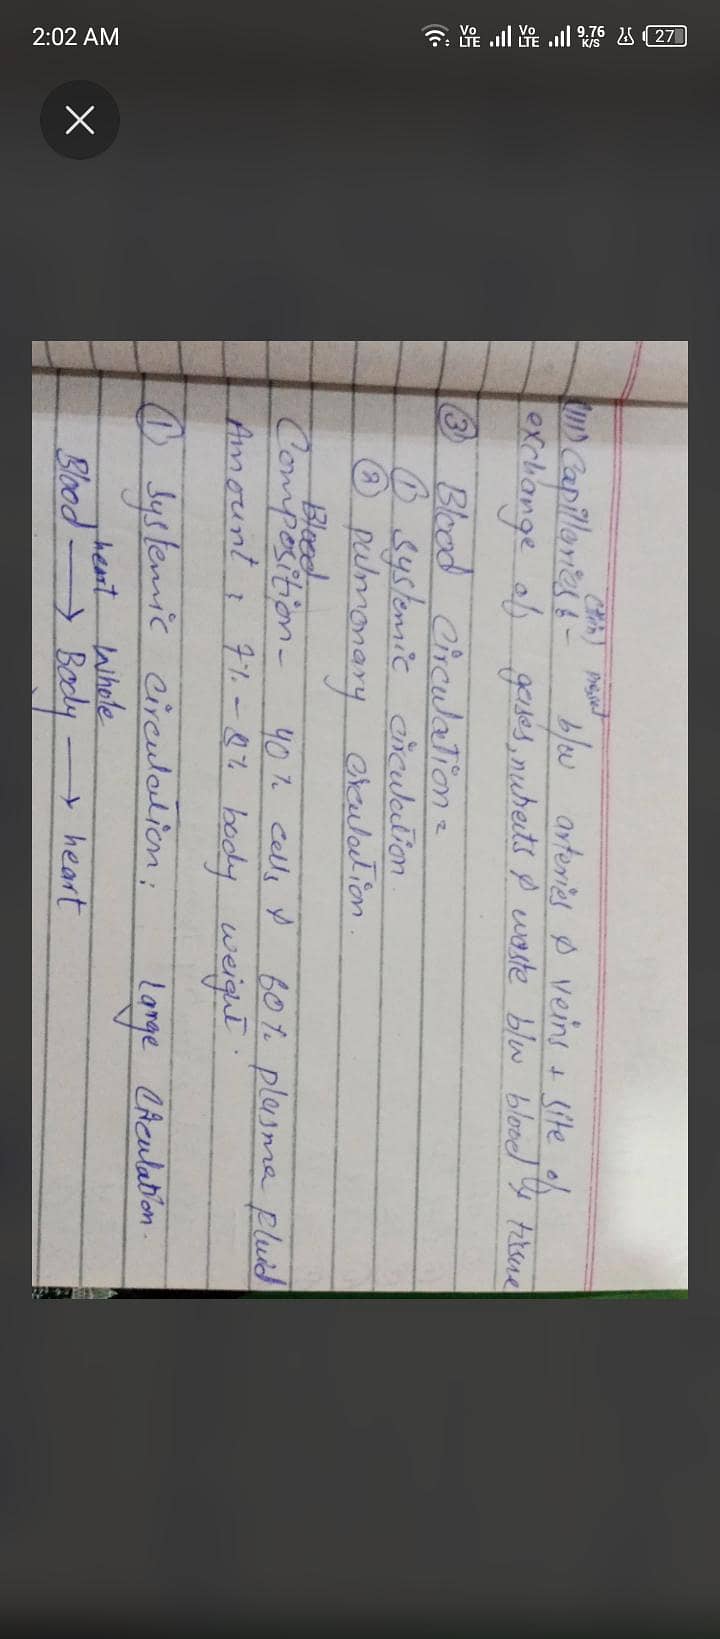 2:02 AM
Vo LTE Vo LTE 9.76 K/S 27
(thin) present
(III) Capillaries :- b/w arteries & veins + site of
exchange of gases, nutrients & waste b/w blood & tissue
③ Blood Circulation =
① systemic circulation.
② pulmonary circulation.
Blood
Composition - 40% cells & 60% plasma fluid
Amount : 7% - 8% body weight.
① systemic circulation : Large Circulation.
heart Whole
Blood → Body → heart